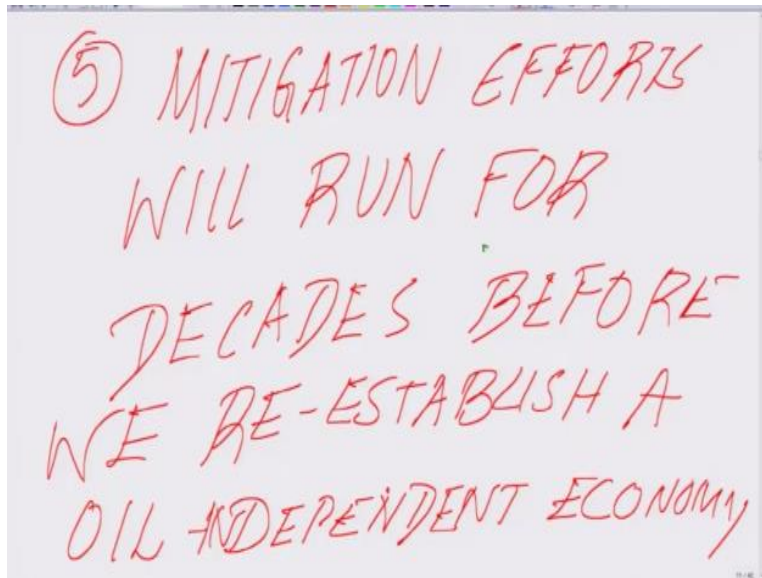 ⑤ MITIGATION EFFORTS
WILL RUN FOR
DECADES BEFORE
WE RE-ESTABLISH A
OIL INDEPENDENT ECONOMY